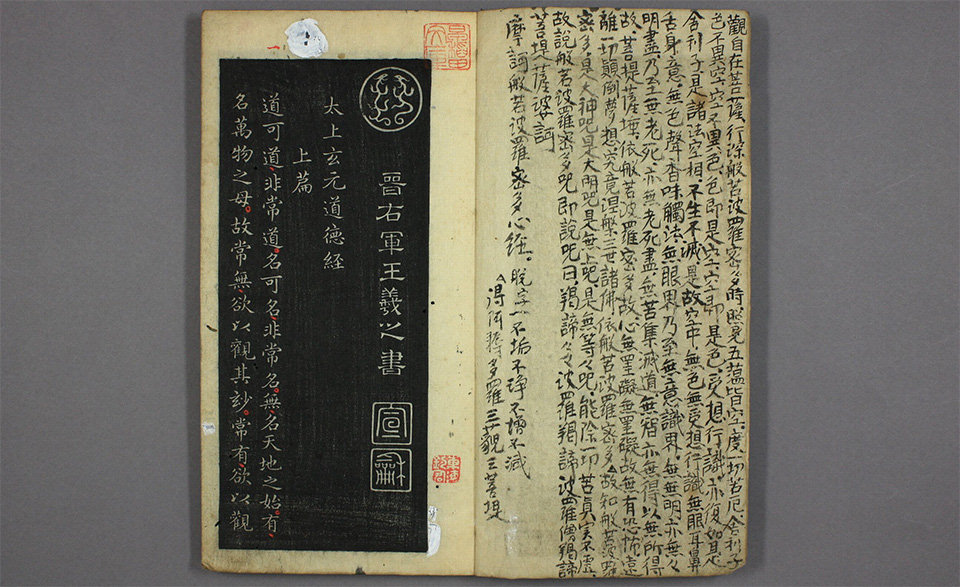 觀自在菩薩行深般若波羅密多時照見五蘊皆空度一切苦厄舍利子
色不異空空不異色色即是空空即是色受想行識亦復如是
舍利子是諸法空相不生不滅是故空中無色無受想行識無眼耳鼻
舌身意無色聲香味觸法無眼界乃至無意識界無無明亦無無
明盡乃至世老死亦無老死盡無苦集滅道無智亦無得以無所得
故菩提薩埵依般若波羅密多故心無罣礙無罣礙故無有恐怖遠
離一切顛倒夢想究竟涅槃三世諸佛依般若波羅密多故知般若波羅
密多是大神咒是大明咒是無上咒是無等々咒能除一切苦真實不虛
故說般若波羅密多咒即說咒曰羯諦々々波羅羯諦波羅僧羯諦
菩提薩婆訶
摩訶般若波羅密多心經。脫字 不垢不淨不增不減
得阿耨多羅三藐三菩提
晉右軍王羲之書
太上玄元道德經
上篇
道可道非常道名可名非常名無名天地之始有
名萬物之母故常無欲以觀其玅常有欲以觀